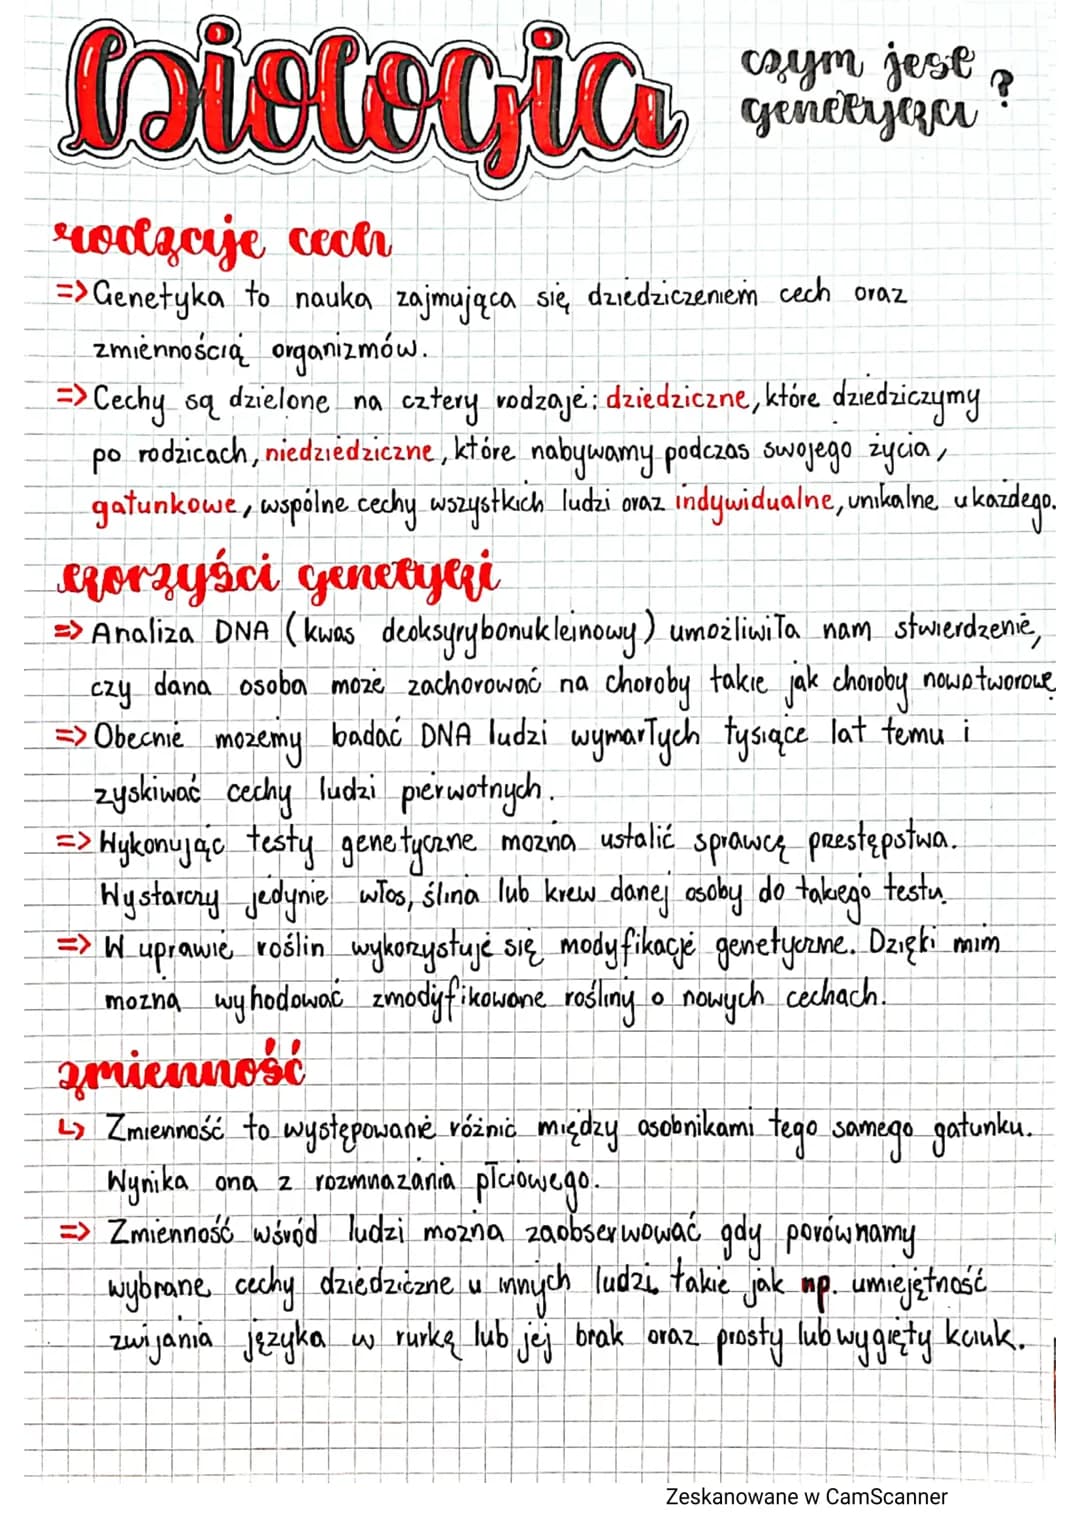 biologia
czym jest
genetyka?
rodzaje cech
=> Genetyka to nauka zajmująca się dziedziczeniem cech oraz
zmiennością organizmów.
=> Cechy są dzielone na cztery rodzaje: dziedziczne, które dziedziczymy
po rodzicach, niedziedziczne, które nabywamy podczas swojego życia,
gatunkowe, wspólne cechy wszystkich ludzi oraz indywidualne, unikalne u każdego.
korzyści genetyki
=> Analiza DNA (kwas deoksyrybonukleinowy) umożliwiła nam stwierdzenie,
czy dana osoba może zachorować na choroby takie jak choroby nowotworowe
=> Obecnie możemy badać DNA ludzi wymarłych tysiące lat temu i
zyskiwać cechy ludzi pierwotnych.
=> Wykonując testy genetyczne można ustalić sprawcę prestępstwa.
Wystarczy jedynie włos, ślina lub krew danej osoby do takiego testu.
=> W uprawie roślin wykorzystuje się modyfikacje genetyczne. Dzięki mim
można wyhodować zmodyfikowane rośliny o nowych cechach.
zmienność
↳ Zmienność to występowanie różnic między osobnikami tego samego gatunku.
Wynika ona z rozmnażania płciowego.
=> Zmienność wśród ludzi można zaobserwować gdy porównamy
wybrane cechy dziedziczne u innych ludzi takie jak np. umiejętność
zwijania języka w rurkę lub jej brak oraz prosty lub wygięty kciuk.
Zeskanowane w CamScanner